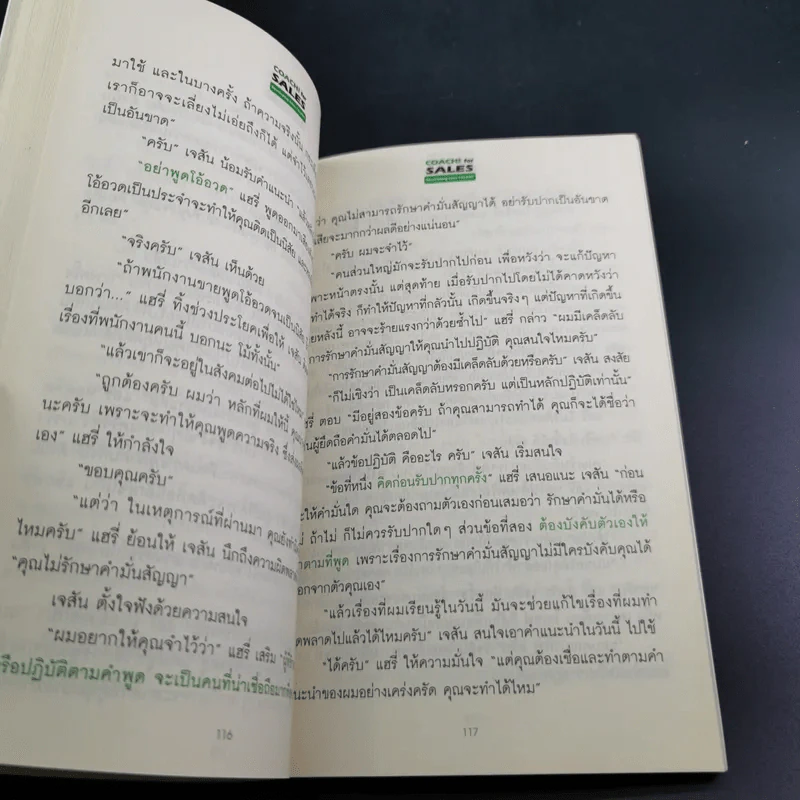 COACH! for
SALES
มาใช้ และในบางครั้ง ถ้าความจริงนั้น
เราก็อาจจะเลี่ยงไม่เอ่ยถึงก็ได้ แต่จำไว้
เป็นอันขาด”
“ครับ” เจสัน น้อมรับคำแนะนำ
“อย่าพูดโอ้อวด” แฮรี่ พูดออกมา
โอ้อวดเป็นประจำจะทำให้คุณติดเป็นนิสัย
อีกเลย”
“จริงครับ” เจสัน เห็นด้วย
“ถ้าพนักงานขายพูดโอ้อวดจนเป็นนิสัย
บอกว่า...” แฮรี่ ทิ้งช่วงประโยคเพื่อให้ เจสัน
เรื่องที่พนักงานคนนี้ บอกนะ โม้ทั้งนั้น”
“แล้วเขาก็จะอยู่ในสังคมต่อไปไม่ได้
“ถูกต้องครับ ผมว่า หลักที่ผมให้นี้
นะครับ เพราะจะทำให้คุณพูดความจริง
เอง” แฮรี่ ให้กำลังใจ
“ขอบคุณครับ”
“แต่ว่า ในเหตุการณ์ที่ผ่านมา คุณยัง
ไหมครับ” แฮรี่ ย้อนให้ เจสัน นึกถึงความผิด
“คุณไม่รักษาคำมั่นสัญญา”
เจสัน ตั้งใจฟังด้วยความสนใจ
“ผมอยากให้คุณจำไว้ว่า” แฮรี่ เสริม
รือปฏิบัติตามคำพูด จะเป็นคนที่น่าเชื่อถือ
116
COACH! for
SALES
ว่า คุณไม่สามารถรักษาคำมั่นสัญญาได้ อย่ารับปากเป็นอันขาด
เสียจะมากกว่าผลดีอย่างแน่นอน”
“ครับ ผมจะจำไว้”
“คนส่วนใหญ่มักจะรับปากไปก่อน เพื่อหวังว่า จะแก้ปัญหา
พาะหน้าตรงนั้น แต่สุดท้าย เมื่อรับปากไปโดยไม่ได้คาดหวังว่า
ทำได้จริง ก็ทำให้ปัญหาที่กลัวนั้น เกิดขึ้นจริงๆ แต่ปัญหาที่เกิดขึ้น
ยหลังนี้ อาจจะร้ายแรงกว่าด้วยซ้ำไป” แฮรี่ กล่าว “ผมมีเคล็ดลับ
การรักษาคำมั่นสัญญาให้คุณนำไปปฏิบัติ คุณสนใจไหมครับ”
“การรักษาคำมั่นสัญญาต้องมีเคล็ดลับด้วยหรือครับ” เจสัน สงสัย
“ก็ไม่เชิงว่า เป็นเคล็ดลับหรอกครับ แต่เป็นหลักปฏิบัติเท่านั้น”
รี่ ตอบ “มีอยู่สองข้อครับ ถ้าคุณสามารถทำได้ คุณก็จะได้ชื่อว่า
นผู้ยึดถือคำมั่นได้ตลอดไป”
“แล้วข้อปฏิบัติ คืออะไร ครับ” เจสัน เริ่มสนใจ
“ข้อที่หนึ่ง คิดก่อนรับปากทุกครั้ง” แฮรี่ เสนอแนะ เจสัน “ก่อน
ะให้คำมั่นใด คุณจะต้องถามตัวเองก่อนเสมอว่า รักษาคำมั่นได้หรือ
ม่ ถ้าไม่ ก็ไม่ควรรับปากใดๆ ส่วนข้อที่สอง ต้องบังคับตัวเองให้
ำตามที่พูด เพราะเรื่องการรักษาคำมั่นสัญญาไม่มีใครบังคับคุณได้
อกจากตัวคุณเอง”
“แล้วเรื่องที่ผมเรียนรู้ในวันนี้ มันจะช่วยแก้ไขเรื่องที่ผมทำ
ดพลาดไปแล้วได้ไหมครับ” เจสัน สนใจเอาคำแนะนำในวันนี้ ไปใช้
“ได้ครับ” แฮรี่ ให้ความมั่นใจ “แต่คุณต้องเชื่อและทำตามคำ
นะนำของผมอย่างเคร่งครัด คุณจะทำได้ไหม”
117